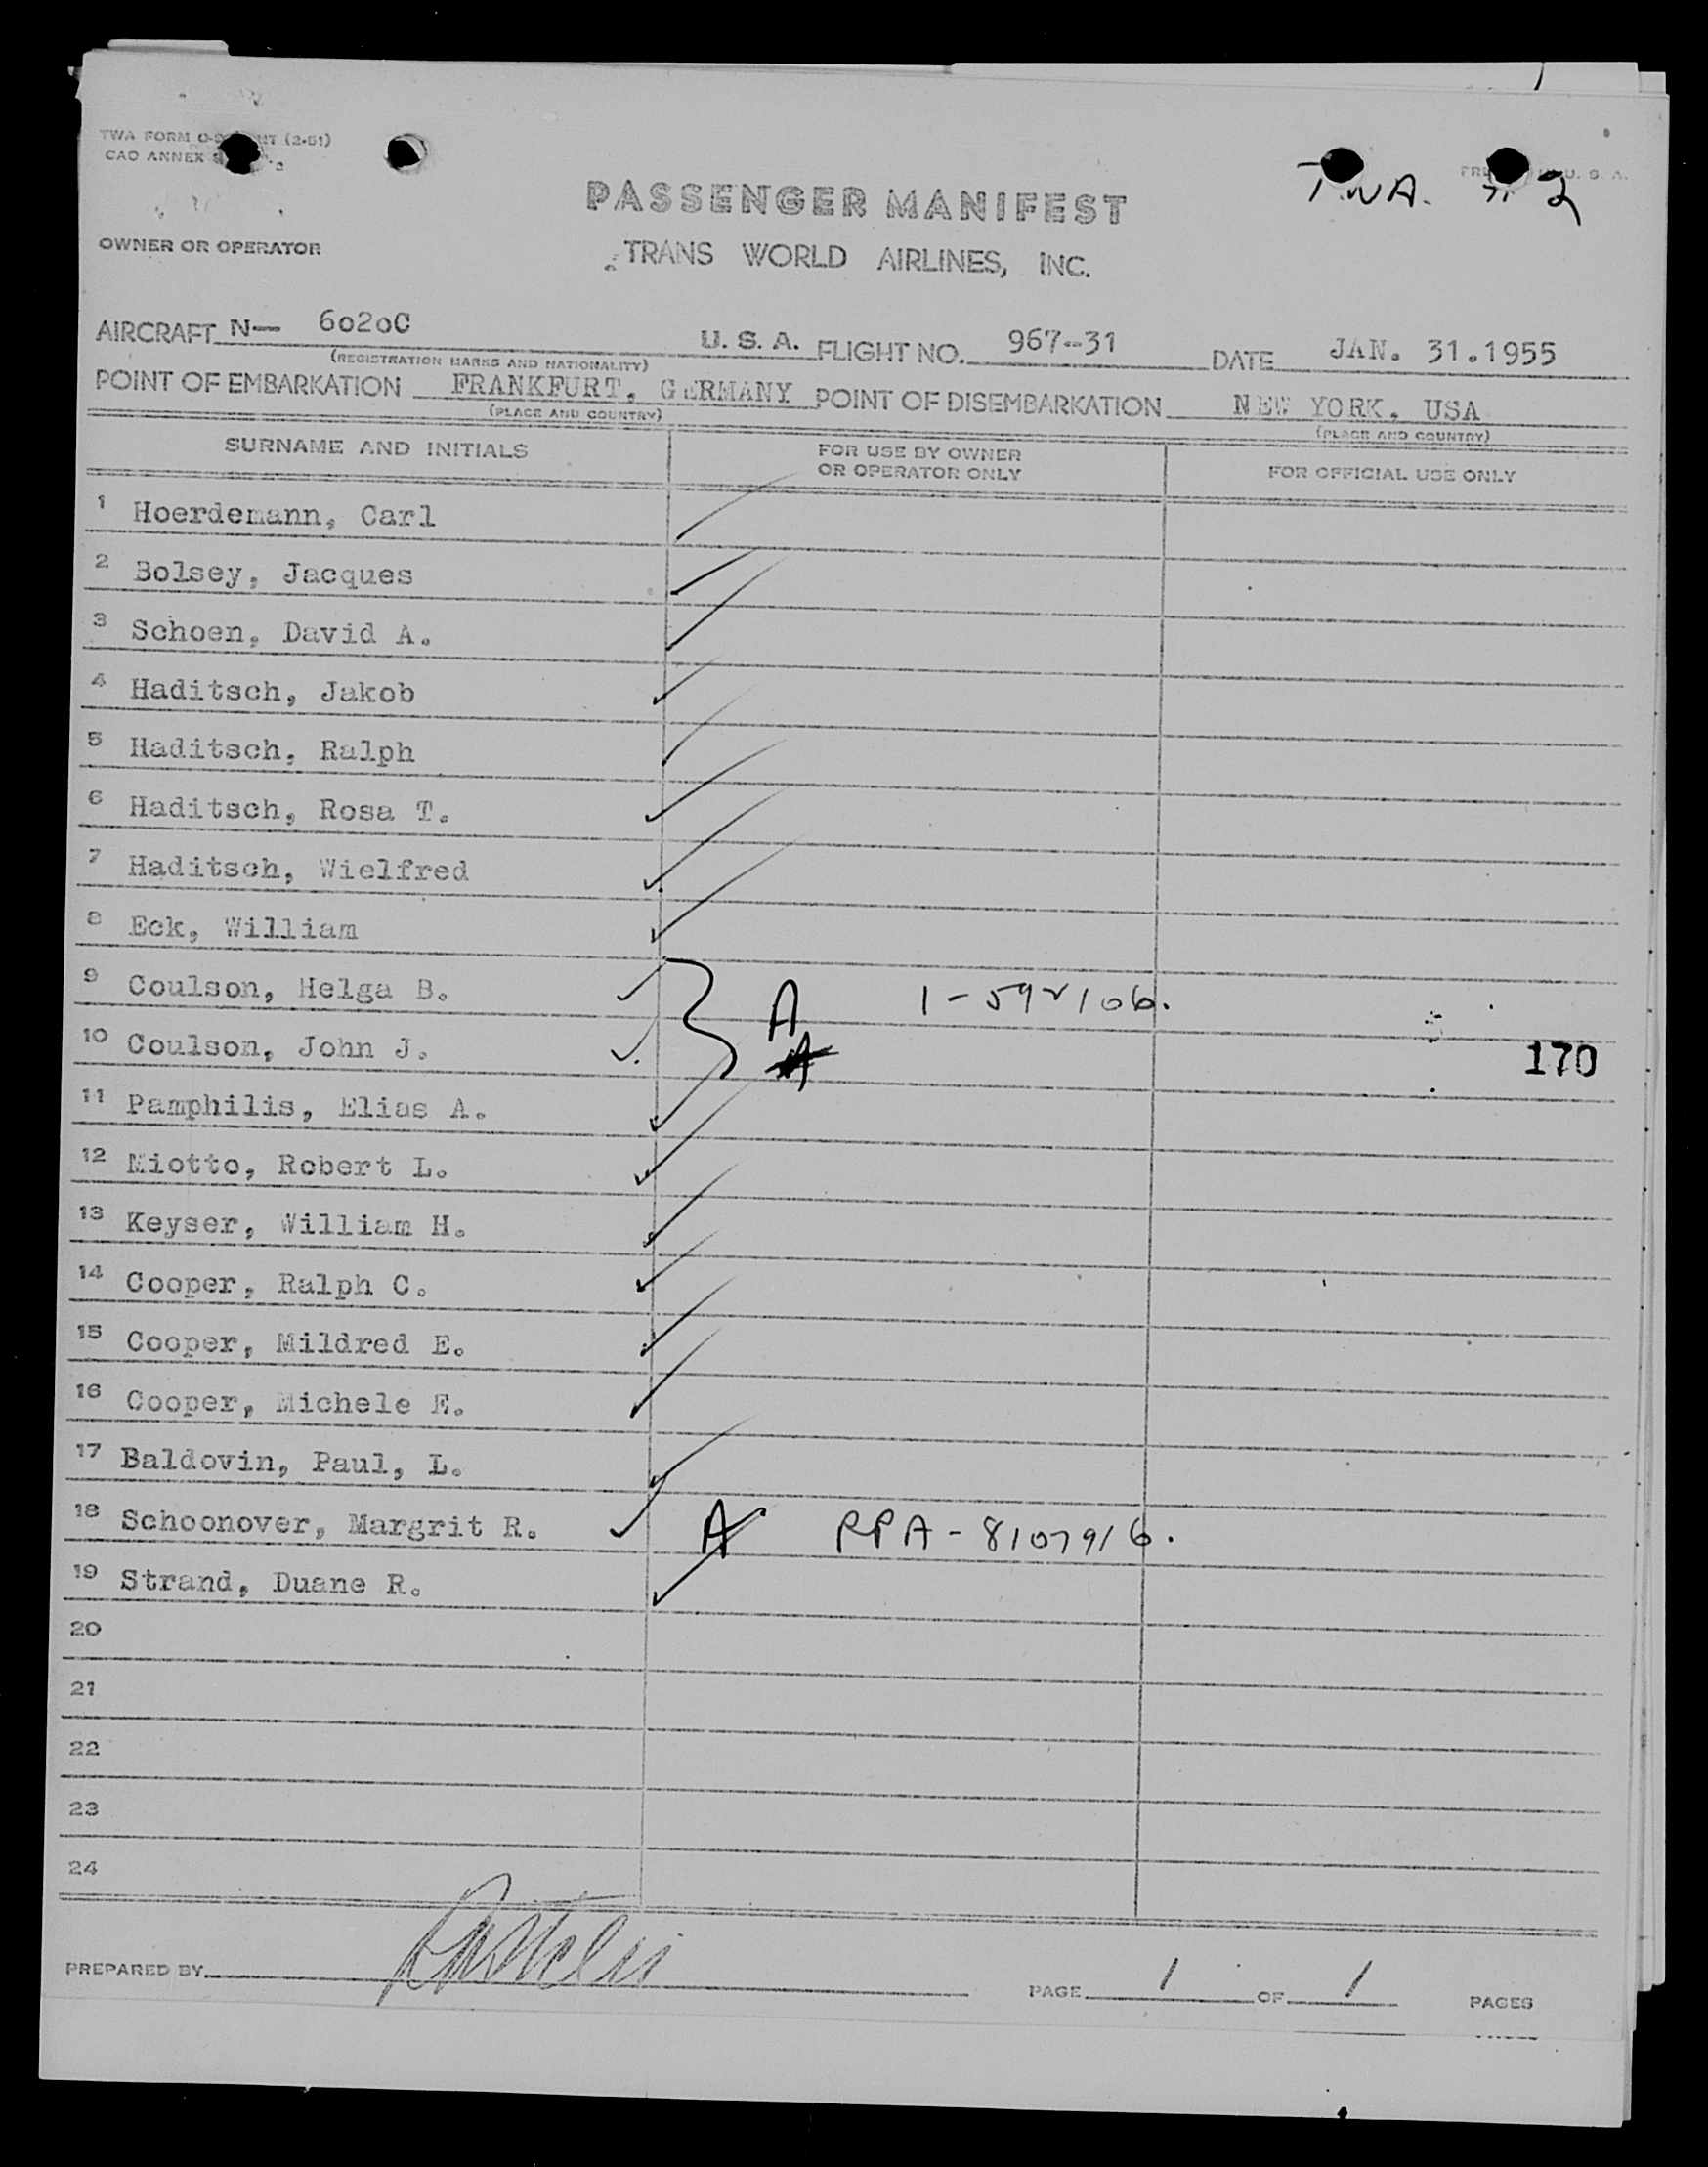 TWA FORM (2-51)
CAO ANNEX
T.W.A. # 2
U. S. A.
PASSENGER MANIFEST
OWNER OR OPERATOR
TRANS WORLD AIRLINES, INC.
AIRCRAFT N— 6020C U. S. A. FLIGHT NO. 967--31 DATE JAN. 31.1955
(REGISTRATION MARKS AND NATIONALITY)
POINT OF EMBARKATION FRANKFURT, GERMANY POINT OF DISEMBARKATION NEW YORK, USA
(PLACE AND COUNTRY) (PLACE AND COUNTRY)
SURNAME AND INITIALS FOR USE BY OWNER OR OPERATOR ONLY FOR OFFICIAL USE ONLY
1 Hoerdemann, Carl
2 Bolsey, Jacques
3 Schoen, David A.
4 Haditsch, Jakob
5 Haditsch, Ralph
6 Haditsch, Rosa T.
7 Haditsch, Wielfred
8 Eck, William
9 Coulson, Helga B. A
10 Coulson, John J. A 170
11 Pamphilis, Elias A.
12 Miotto, Robert L.
13 Keyser, William H.
14 Cooper, Ralph C.
15 Cooper, Mildred E.
16 Cooper, Michele E.
17 Baldovin, Paul, L.
18 Schoonover, Margrit R. A PPA-8107916.
19 Strand, Duane R.
20
21
22
23
24
PREPARED BY
PAGE 1 OF 1 PAGES